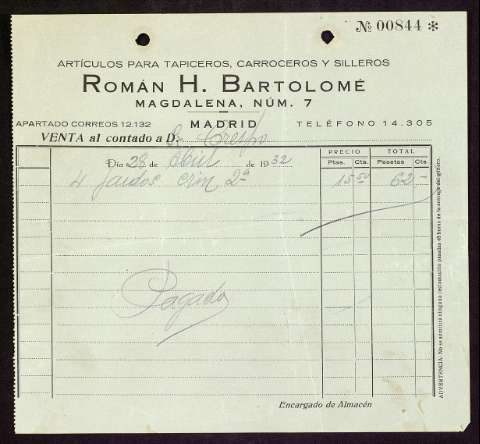 Nº 00844 *
ARTÍCULOS PARA TAPICEROS, CARROCEROS Y SILLEROS
ROMÁN H. BARTOLOMÉ
MAGDALENA, NÚM. 7
MADRID
APARTADO CORREOS 12.132 TELÉFONO 14.305
VENTA al contado a D. Crespo
PRECIO TOTAL
Día 28 Abril 1932 Ptas. Cts. Pesetas Cts.
4 fardos crin 2ª 15 50 62 —
Pagado
Encargado de Almacén